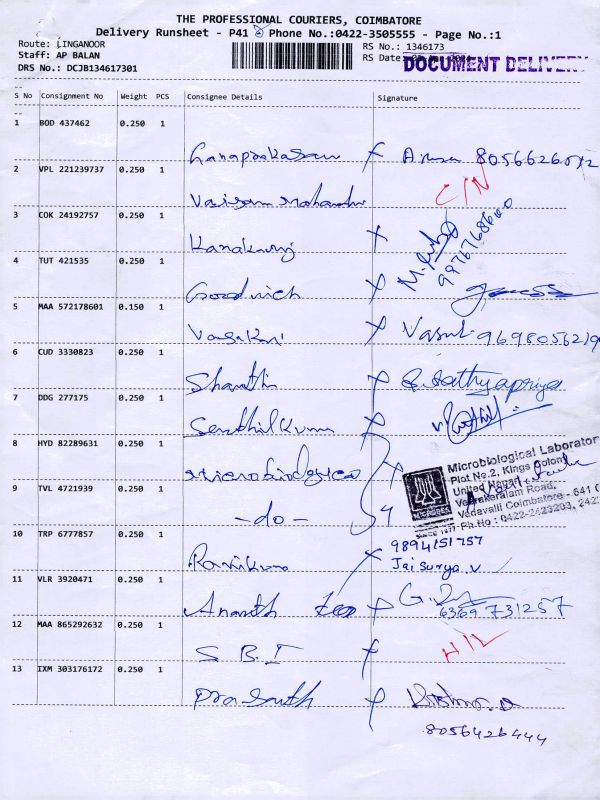 THE PROFESSIONAL COURIERS, COIMBATORE
Delivery Runsheet - P41 Phone No.:0422-3505555 - Page No.:1
Route: LINGANOOR
RS No.: 1346173
Staff: AP BALAN
RS Date:
DOCUMENT DELIVERY
DRS No.: DCJB134617301
S No Consignment No Weight PCS Consignee Details Signature
1 BOD 437462 0.250 1
Ganaprakasam
2 VPL 221239737 0.250 1
C/N
3 COK 24192757 0.250 1
Kanakaraj
4 TUT 421535 0.250 1
Goodwich
5 MAA 572178601 0.150 1
Vasuki Vasuki
6 CUD 3330823 0.250 1
Shanthi S.Sathyapriya
7 DDG 277175 0.250 1
Senthilkumar
8 HYD 82289631 0.250 1
Microbiological
Microbiological Laborator
Plot No.2, Kings Colony
United Nagar
Veerakeralam Road,
Vadavalli Coimbatore - 641 0
Ph No : 0422-2423203, 242
MICROBES
SINCE 1977
9 TVL 4721939 0.250 1
- do -
10 TRP 6777857 0.250 1
9894151757
Ramkumar Jaisurya.V
11 VLR 3920471 0.250 1
Ananth
6369731257
12 MAA 865292632 0.250 1
S B I
13 IXM 303176172 0.250 1
Prasanth
8056426444